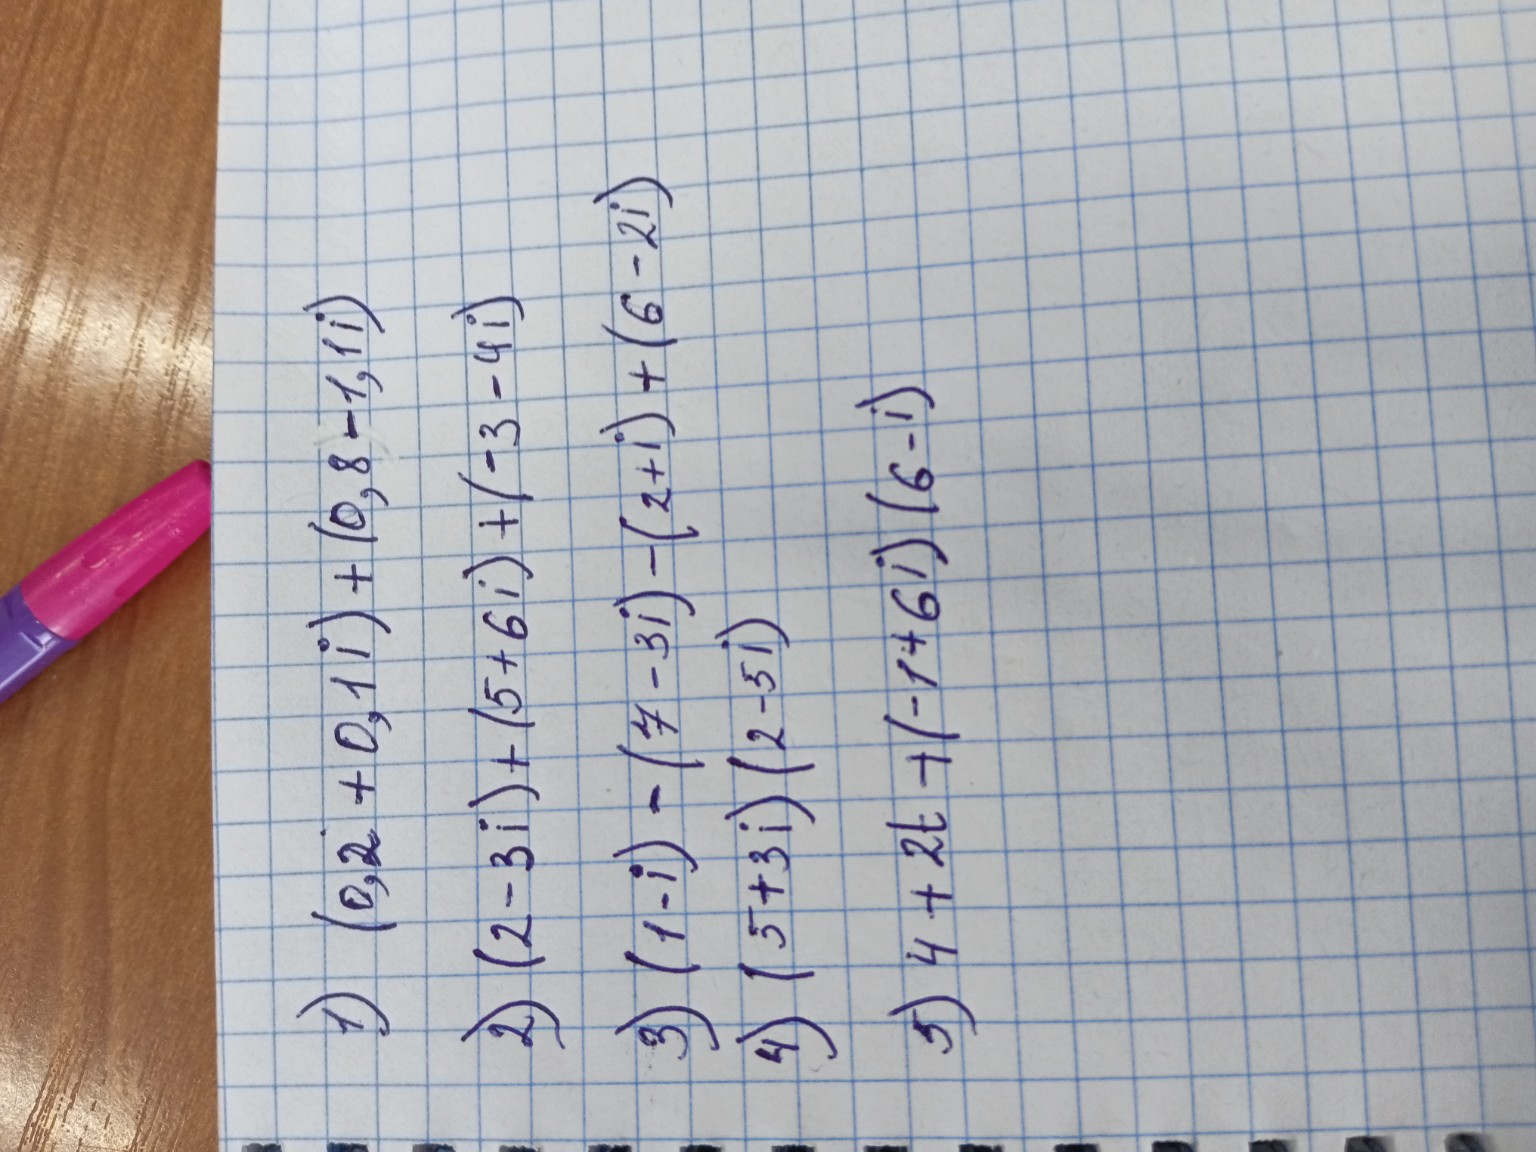 1) (0,2 + 0,1i) + (0,8 - 1,1i)
2) (2 - 3i) + (5 + 6i) + (-3 - 4i)
3) (1 - i) - (7 - 3i) - (2 + i) + (6 - 2i)
4) (5 + 3i) (2 - 5i)
5) 4 + 2t + (-1 + 6i) (6 - i)